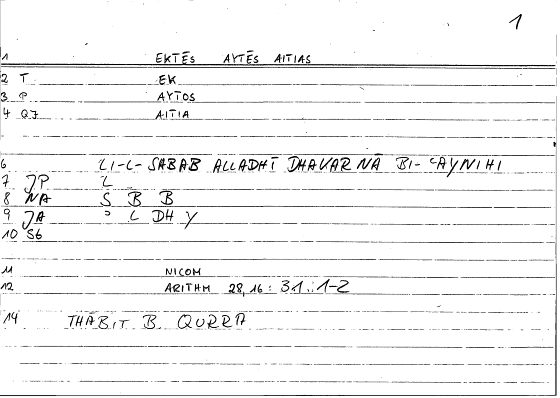 1
1 EKTĒS AYTĒS AITIAS
2 T EK
3 P AYTOS
4 Q7 AITIA
6 LI-L-SABAB ALLADHĪ DHAKARNĀ BI-ʿAYNIHI
7 JP L
8 NA S B B
9 JA ᵓ L DH Y
10 S6
11 NICOM
12 ARITHM 28,16: 31:1-2
14 THĀBIT B. QURRA